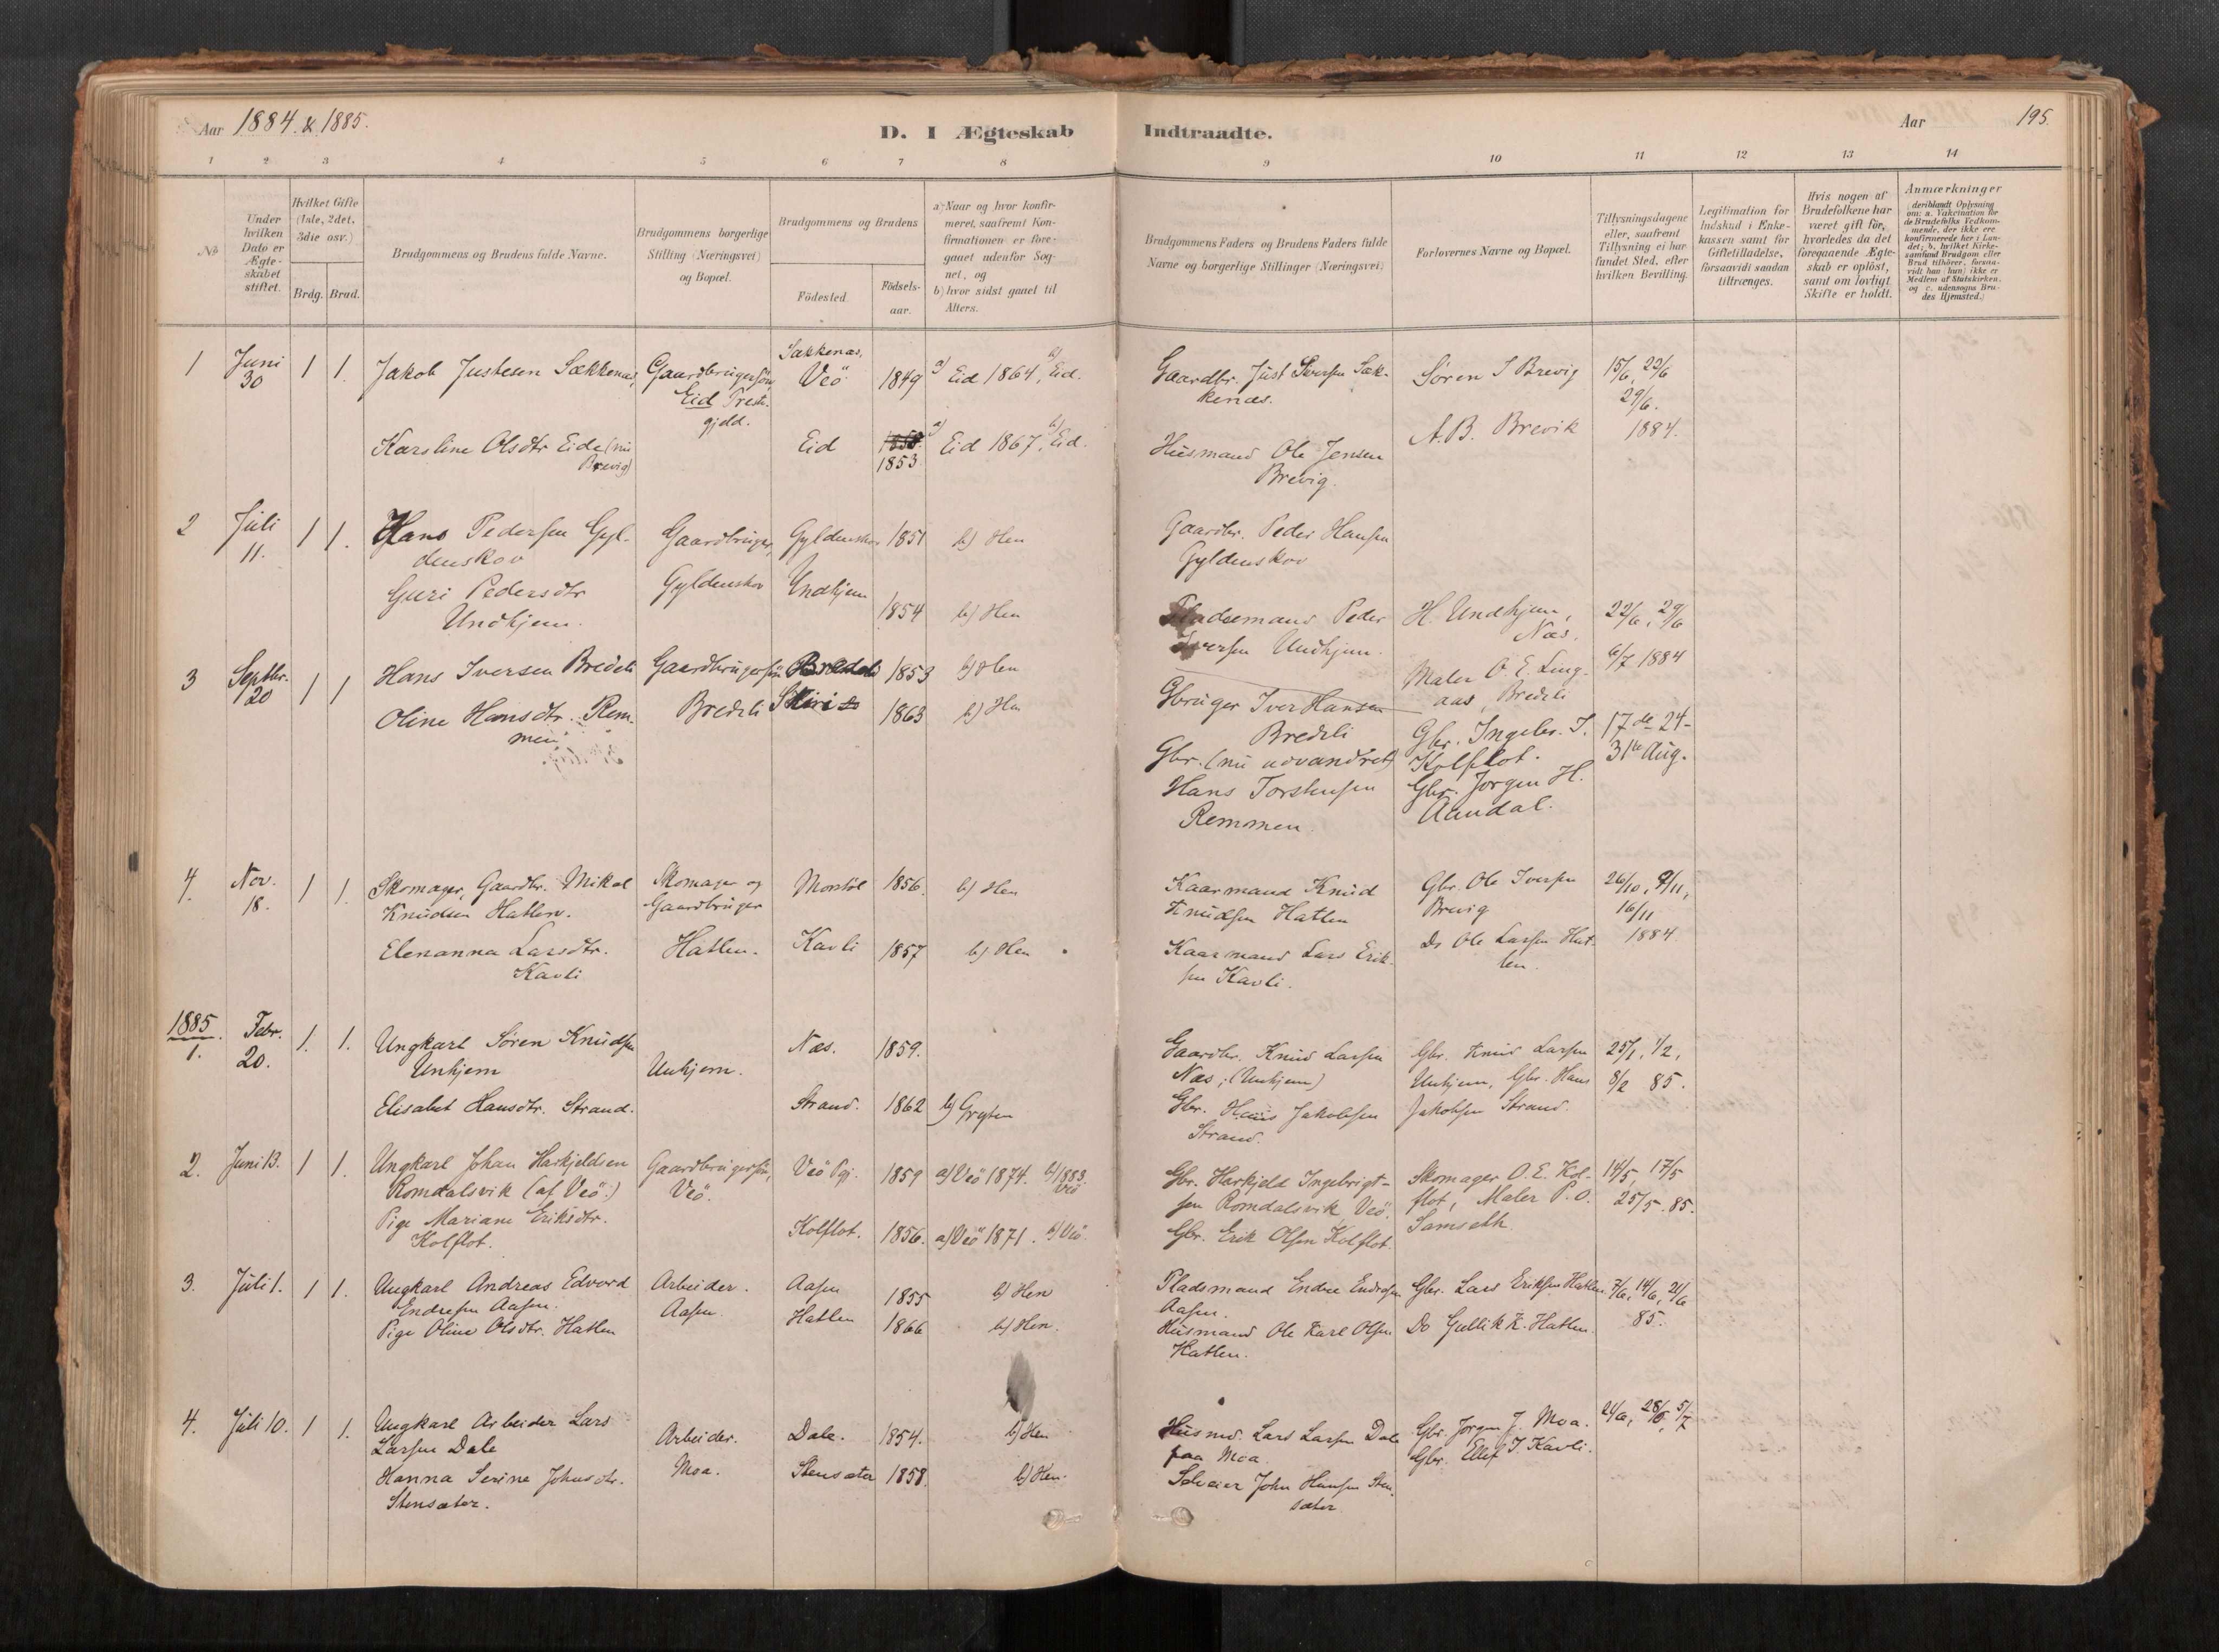 Aar 1884 & 1885.
D. I Ægteskab Indtraadte.
Aar
195.
1 2 3 4 5 6 7 8 9 10 11 12 13 14
No
Under hvilken Dato er Ægteskabet stiftet.
Hvilket Gifte (1ste, 2det, 3die osv.)
Brdg. Brud.
Brudgommens og Brudens fulde Navne.
Brudgommens borgerlige Stilling (Næringsvei) og Bopæl.
Brudgommens og Brudens
Födested.
Födsels-aar.
a) Naar og hvor konfirmeret, saafremt Konfirmationen er foregaaet udenfor Sognet, og
b) hvor sidst gaaet til Alters.
Brudgommens Faders og Brudens Faders fulde Navne og borgerlige Stillinger (Næringsvei)
Forlovernes Navne og Bopæl.
Tillysningsdagene eller, saafremt Tillysning ei har fundet Sted, efter hvilken Bevilling.
Legitimation for Indskud i Enkekassen samt for Giftetilladelse, forsaavidt saadan tiltrænges.
Hvis nogen af Brudefolkene har været gift för, hvorledes da det foregaaende Ægteskab er oplöst, samt om lovligt Skifte er holdt.
Anmærkninger (deriblandt Oplysning om: a. Vakcination for de Brudefolks Vedkommende, der ikke ere konfirmerede her i Landet; b. hvilket Kirkesamfund Brudgom eller Brud tilhörer, forsaavidt han (hun) ikke er Medlem af Statskirken, og c. udensogns Brudes Hjemsted.)
1 Juni 30 1 1.
Jakob Justesen Sækkenæs,
Gaardbrugersön,
Eid Prestegjeld.
Sækkenæs, Veö 1849 a) Eid 1864, b) Eid.
Gaardbr. Just Iversen Sækkenæs.
Søren I Brevig
15/6, 22/6
29/6.
1884.
Karoline Olsdtr Eide (nu Brevig)
Eid 1853. a) Eid 1867, b) Eid.
Husmand Ole Jensen Brevig.
A. B. Brevik
2 Juli 11. 1 1.
Hans Pedersen Gyldenskov
Gaardbruger,
Gyldenskov
Gyldenskov 1851 b) Hen
Gaardbr. Peder Hansen Gyldenskov
Guri Pedersdtr Undhjem.
Undhjem 1854 b) Hen
Pladsemand Peder Iversen Undhjem.
H. Undhjem, Næs.
Maler O. E. Lengaas, Bredeli
22/6, 29/6
6/7 1884
3 Septbr. 20 1 1
Hans Iversen Bredeli
Gaardbrugersön
Bredeli
Bredeli 1853 b) Hen
Gbruger Iver Hansen Bredeli
Gbr. Ingebr. I. Kolflot.
17de-24-
31te Aug.
Oline Hansdtr. Remmen
1863 b) Hen
Gbr. (nu udvandret) Hans Torstensen Remmen
Gbr. Jorgen H. Aandal.
4. Nov. 18. 1 1.
Skomager, Gaardbr. Mikal Knudsen Hatlen.
Skomager og Gaardbruger
Hatlen.
Monstöl 1856. b) Hen
Kaarmand Knud Knudsen Hatlen
Gbr. Ole Iversen Brevig
26/10, 9/11,
16/11
1884
Elenanna Larsdtr. Kavli
Kavli 1857 b) Hen
Kaarmand Lars Eriksen Kavli.
Do Ole Larsen Hatlen.
1885.
1. Febr. 20. 1. 1.
Ungkarl Søren Knudsen Unhjem
Unhjem.
Næs. 1859.
Gaardbr. Knud Larsen Næs, (Unhjem)
Gbr. Knud Larsen Unhjem, Gbr. Hans Jakobsen Strand.
25/1, 1/2,
8/2 85.
Elisabet Hansdtr. Strand.
Strand. 1862 b) Gryten
Gbr. Hans Jakobsen Strand.
2. Juni 13. 1 1.
Ungkarl Johan Harkjeldsen Romdalsvik (af Veö.)
Gaardbrugersön,
Veö.
Veö Pgj. 1859 a) Veö 1874. b) 1883. Veö
Gbr. Harkjeld Ingebrigtsen Romdalsvik Veö.
Skomager O. E. Kolflot, Maler P. O. Samseth
14/5, 17/5
25/5-85.
Pige Mariane Eriksdtr. Kolflot.
Kolflot. 1856. a) Veö 1871. b) Veö.
Gbr. Erik Olsen Kolflot.
3. Juli 1. 1 1.
Ungkarl Andreas Edvard Endresen Aasen.
Arbeider.
Aasen.
Aasen 1855 b) Hen
Pladsmand Endre Endresen Aasen.
Gbr. Lars Eriksen Hatlen.
7/6, 14/6, 21/6
85.
Pige Oline Olsdtr. Hatlen
Hatlen 1866 b) Hen.
Husmand Ole Karl Olsen Hatlen.
Do Gullik K. Hatlen.
4. Juli 10. 1 1.
Ungkarl Arbeider Lars Larsen Dale
Arbeider.
Moa.
Dale. 1854. b) Hen
Husmd. Lars Larsen Dale paa Moa.
Gbr. Jorgen J. Moa.
Gbr. Ellef I. Kavli.
21/6, 28/6, 5/7
Hanna Serine Johnsdtr. Stensæter.
Stensæter 1858. b) Hen.
Selveier John Hansen Stensæter